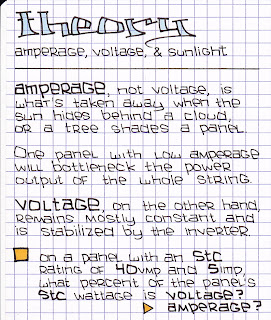 theory
amperage, voltage, & sunlight
amperage, not voltage, is
what's taken away when the
sun hides behind a cloud,
or a tree shades a panel.
One panel with low amperage
will bottleneck the power
output of the whole string.
voltage, on the other hand,
remains mostly constant and
is stabilized by the inverter.
on a panel with an stc
rating of 40vmp and 5imp,
what percent of the panel's
stc wattage is voltage?
amperage?